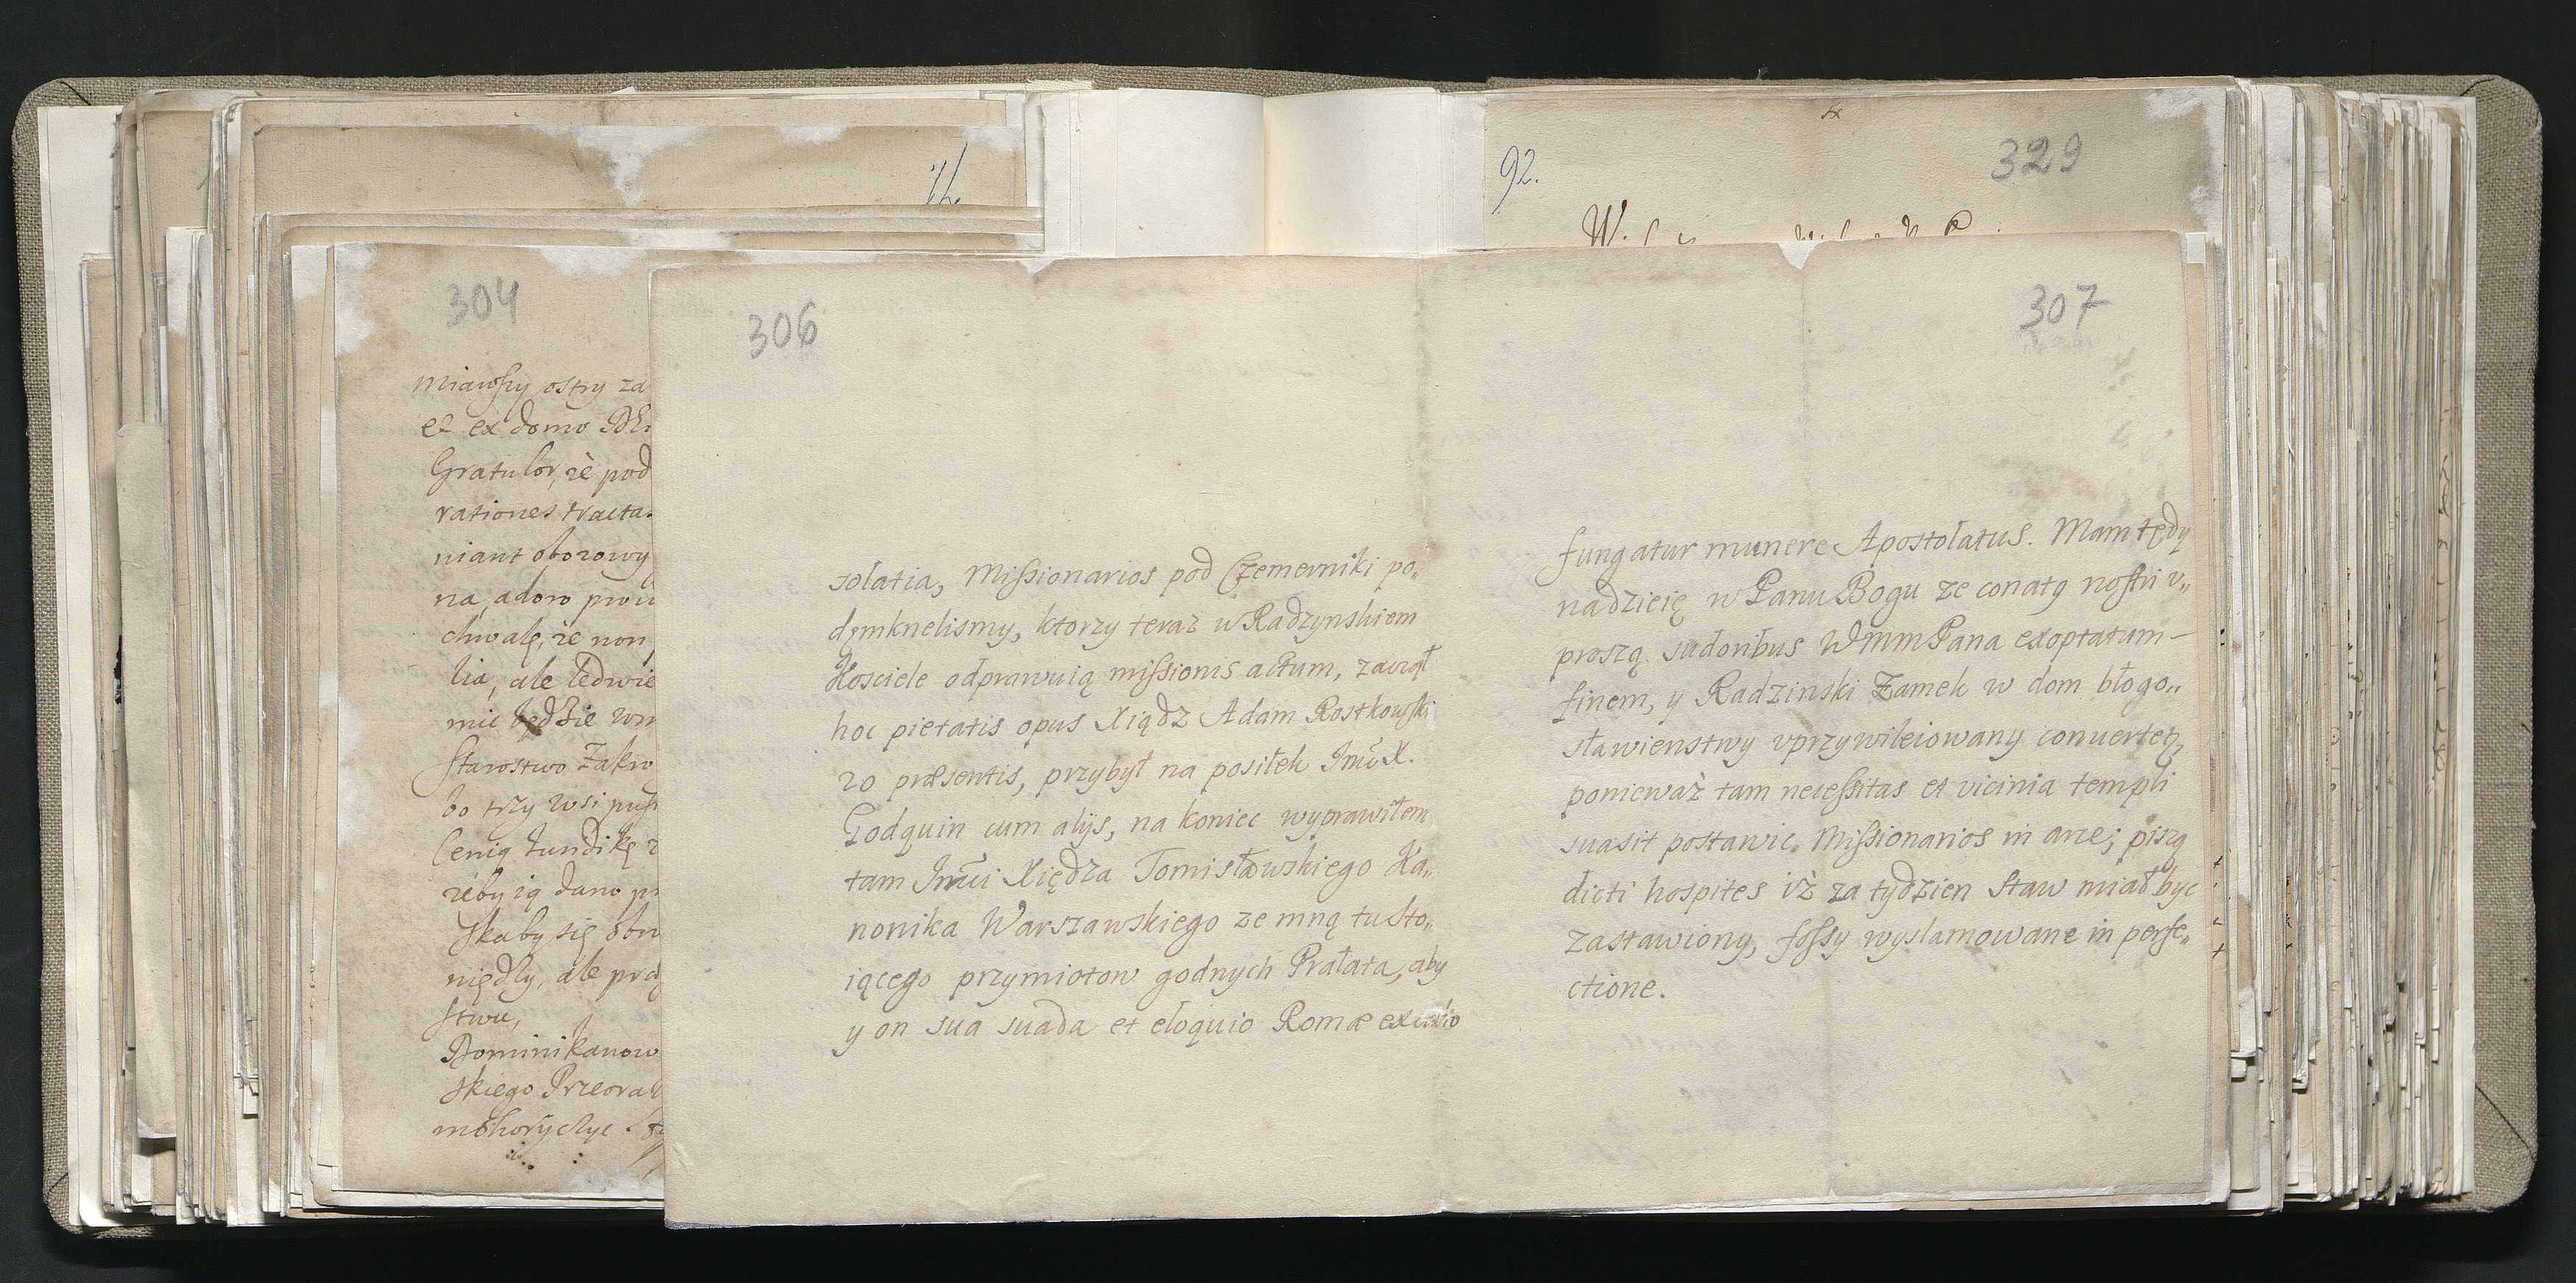 304
miawszy ostry za
et ex domo
Gratulor, że pod
rationes tracta
niant oborowy
na, adoro
chwalę, że non
lia, ale ledwie
mie będzie
Starostwo Zakro
bo trzy wsi
żeby ią dano
skaby się
ale
stwu,
Dominikanow
skiego Przeora
306
solatia, Missionarios pod Czemerniki po„
dęmknelismy, ktorzy teraz w Radzynskiem
Kosciele odprawuią missionis actum, zaczął
hoc pietatis opus Xiądz Adam Rostkowski
20 præsentis, przybył na posiłek Jmć X.
Godquin cum alijs, na koniec wyprawiłem
tam Jmći Xiędza Tomisławskiego Ka„
nonika Warszawskiego ze mną tu sto„
iącego przymiotow godnych Prałata, aby
y on sua suada et eloquio Romæ
92.
329
307
fungatur munere Apostolatus. Mam tędy
nadzieię w Panu Bogu ze conatq nostri v„
proszą sudoribus WMMPana exoptatum –
finem, y Radzinski Zamek w dom błogo„
sławienstwy vprzywileiowany conuerteh,
ponieważ tam necessitas et vicinia templi
suasit postawic Missionarios in arce; piszą
dicti hospites iż za tydzien Staw miał byc
zastawiony, fossy wyslamowane in perfe„
ctione.